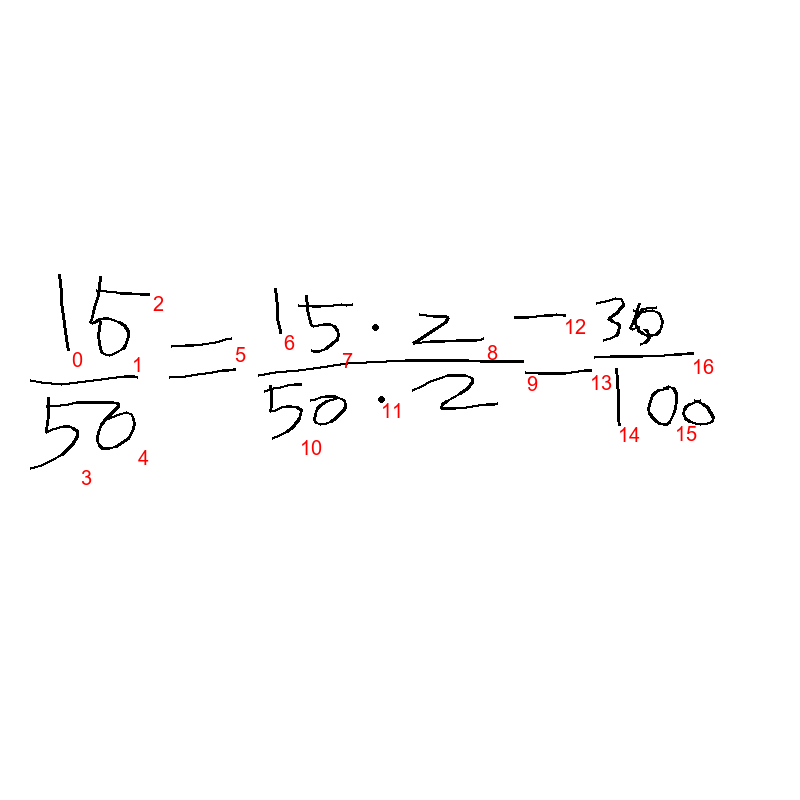 \frac{15}{50} = \frac{15 \cdot 2}{50 \cdot 2} = \frac{30}{100}
0 1 2 3 4 5 6 7 8 9 10 11 12 13 14 15 16